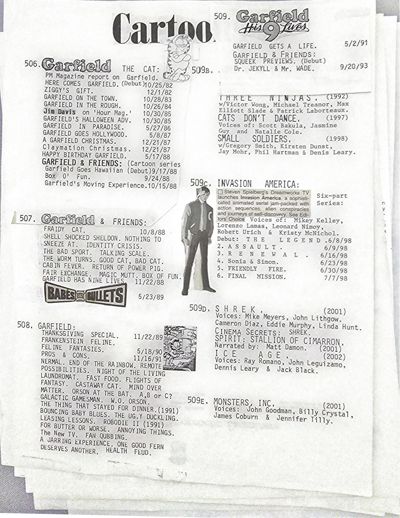 Cartoo
509. Garfield
His 9 Lives
GARFIELD GETS A LIFE. 5/2/91
GARFIELD & FRIENDS:
SQUEEK PREVIEWS. (Debut)
Dr. JEKYLL & Mr. WADE. 9/20/93
506. Garfield THE CAT:
PM Magazine report on Garfield.
HERE COMES GARFIELD.(Debut)10/25/82
ZIGGY'S GIFT. 12/1/82
GARFIELD ON THE TOWN. 10/28/83
GARFIELD IN THE ROUGH. 10/26/84
Jim Davis on 'Hour Mag.' 10/30/85
GARFIELD'S HALLOWEEN ADV. 10/30/85
GARFIELD IN PARADISE. 5/27/86
GARFIELD GOES HOLLYWOOD. 5/8/87
A GARFIELD CHRISTMAS. 12/21/87
Claymation Christmas. 12/21/87
HAPPY BIRTHDAY GARFIELD. 5/17/88
GARFIELD & FRIENDS: (Cartoon series
Garfield Goes Hawaiian (Debut)9/17/88
Box O' Fun. 9/24/88
Garfield's Moving Experience.10/15/88
507. Garfield & FRIENDS:
FRAIDY CAT. 10/8/88
SHELL SHOCKED SHELDON. NOTHING TO
SNEEZE AT. IDENTITY CRISIS.
THE BAD SPORT. TALKING SCALE.
THE WORM TURNS. GOOD CAT, BAD CAT.
CABIN FEVER. RETURN OF POWER PIG.
FAIR EXCHANGE. MAGIC MUTT. BOX OF FUN.
GARFIELD HAS NINE LIVES. 11/22/88
BABES and BULLETS 5/23/89
508. GARFIELD:
THANKSGIVING SPECIAL. 11/22/89
FRANKENSTEIN FELINE.
FELINE FANTASIES. 5/18/90
PROS & CONS. 11/16/91
NERMAL. END OF THE RAINBOW. REMOTE
POSSIBILITIES. NIGHT OF THE LIVING
LAUNDROMAT. FAST FOOD. FLIGHTS OF
FANTASY. CASTAWAY CAT. MIND OVER
MATTER. ORSON AT THE BAT. A,B or C?
GALACTIC GAMESMAN. W.O. ORSON.
THE THING THAT STAYED FOR DINNER.(1991)
BOUNCING BABY BLUES. THE UGLY DUCKLING.
LEASING LESSONS. ROBODIE II (1991)
FOR BUTTER OR WORSE. ANNOYING THINGS.
The New TV. FAN QUBBING.
A JARRING EXPERIENCE. ONE GOOD FERN
DESERVES ANOTHER. HEALTH FLUD.
509B.
THREE NINJAS. (1992)
w/Victor Wong, Michael Treanor, Max
Elliott Slade & Patrick Laborteaux.
CATS DON'T DANCE. (1997)
Voices of: Scott Bakula, Jasmine
Guy and Natalie Cole.
SMALL SOLDIERS. (1998)
w/Gregory Smith, Kirsten Dunst,
Jay Mohr, Phil Hartman & Denis Leary.
509c. INVASION AMERICA:
Steven Spielberg's Dreamworks TV
launches Invasion America, a sophisti-
cated animated serial jam-packed with
action sequences, alien conspiracies
and journeys of self-discovery. See Edi-
tors Choice
Six-part
Series:
Voices of: Mikey Kelley,
Lorenzo Lamas, Leonard Nimoy,
Robert Urich & Kristy McNichol.
Debut: THE LEGEND.6/8/98
2. ASSAULT. 6/9/98
3. RENEWAL. 6/16/98
4. Sonia & Simon. 6/23/98
5. FRIENDLY FIRE. 6/30/98
6. FINAL MISSION. 7/7/98
509D. SHREK. (2001)
Voices: Mike Meyers, John Lithgow,
Cameron Diaz, Eddie Murphy, Linda Hunt.
CINEMA SECRETS: SHREK.
SPIRIT: STALLION OF CIMARRON.
Narrated by: Matt Damon. (2002)
ICE AGE. (2002)
Voices: Ray Romano, John Leguizamo,
Dennis Leary & Jack Black.
509E. MONSTERS, INC. (2001)
Voices: John Goodman, Billy Crystal,
James Coburn & Jennifer Tilly.